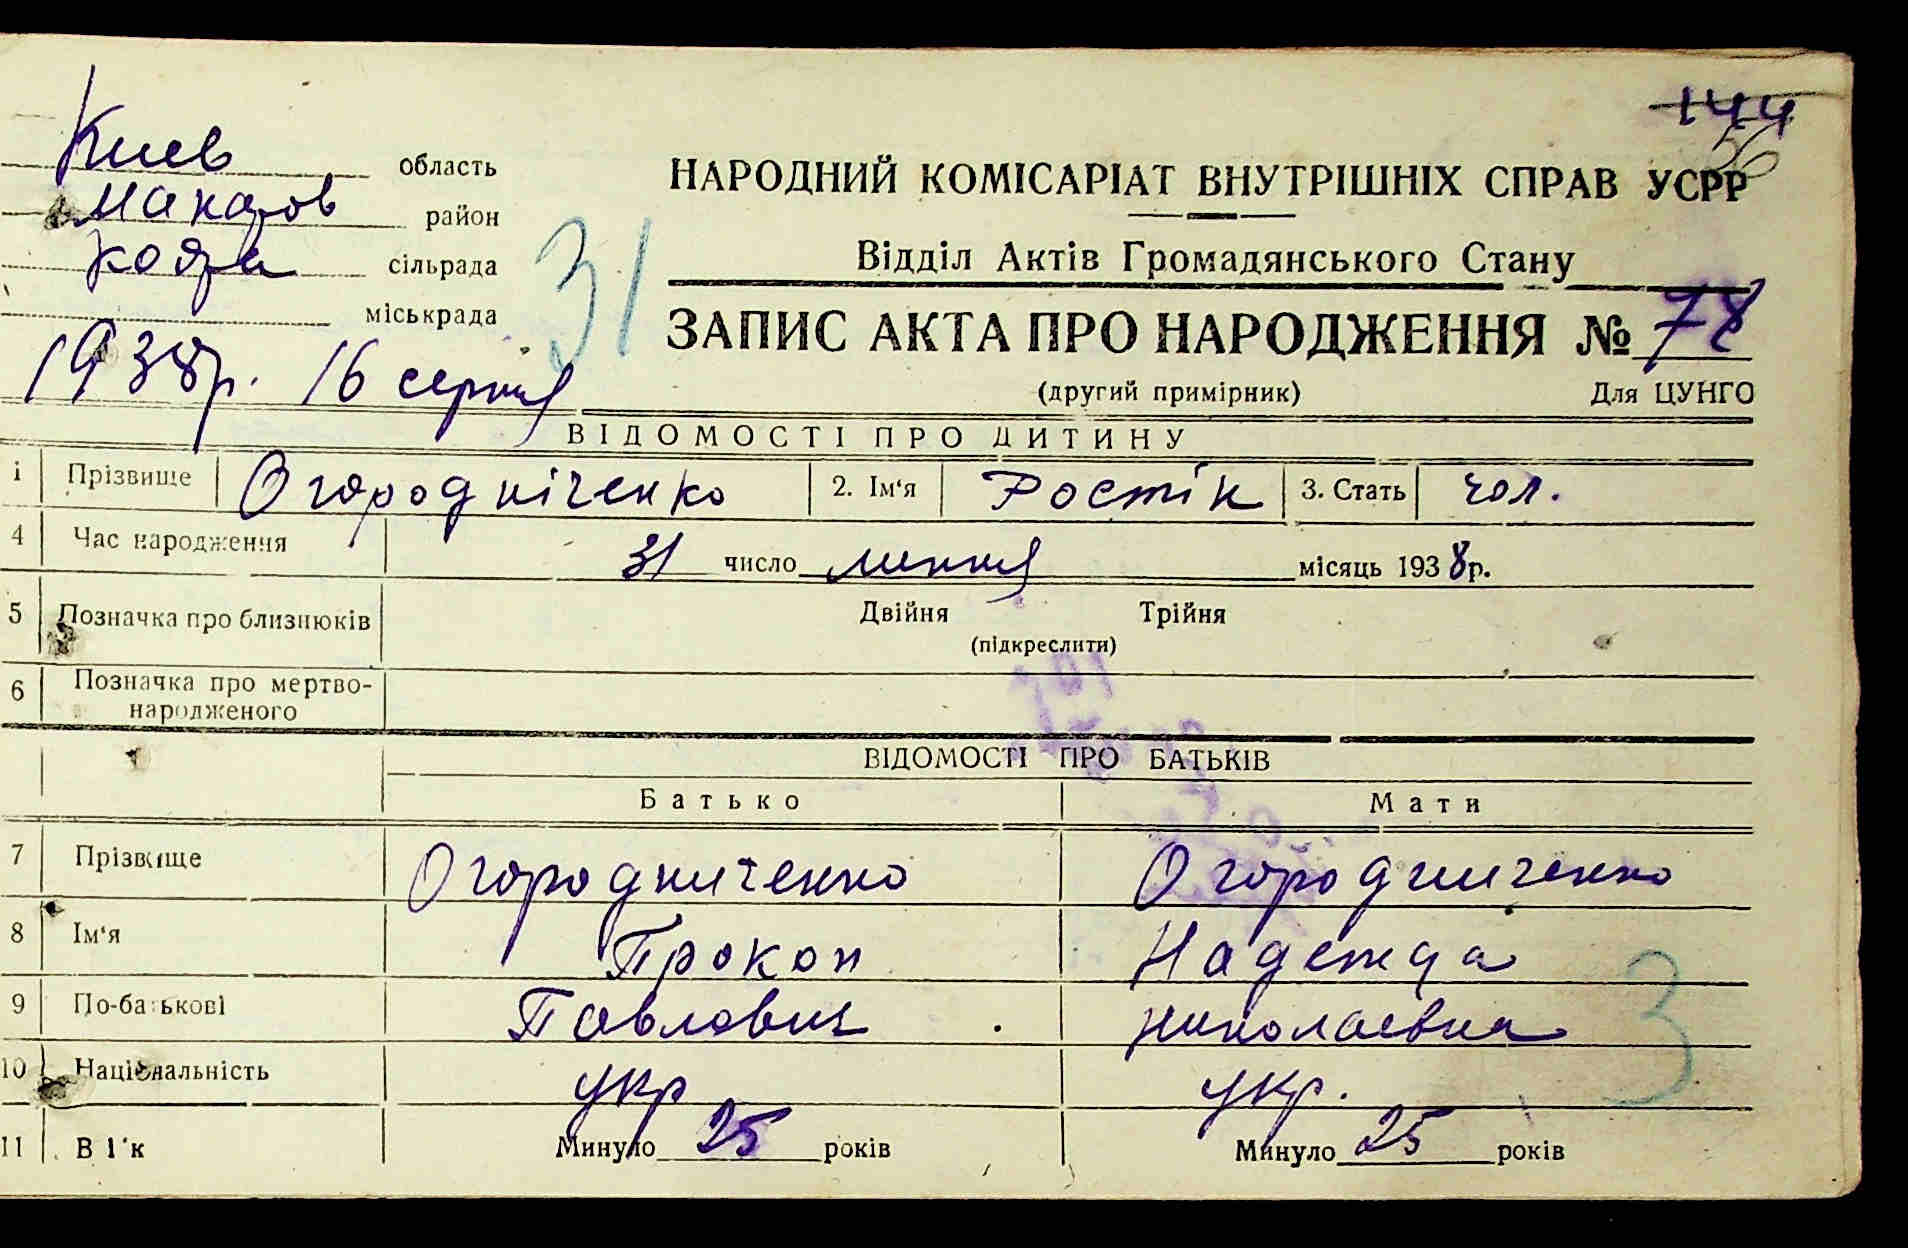 144
56
Киев область
Макаров район
Кодра сільрада
міськрада
1938р. 16 серпня
31
НАРОДНИЙ КОМІСАРІАТ ВНУТРІШНІХ СПРАВ УСРР
Відділ Актів Громадянського Стану
ЗАПИС АКТА ПРО НАРОДЖЕННЯ № 78
(другий примірник) Для ЦУНГО
ВІДОМОСТІ ПРО ДИТИНУ
1 Прізвище Огородніченко 2. Ім‘я Ростік 3. Стать чол.
4 Час народження 31 число липня місяць 1938р.
5 Позначка про близнюків Двійня Трійня
(підкреслити)
6 Позначка про мертво-
народженого
ВІДОМОСТІ ПРО БАТЬКІВ
Батько Мати
7 Прізвище Огородниченко Огородниченко
8 Ім‘я Прокоп Надежда
9 По-батькові Павлович Николаевна
3
10 Національність укр укр.
11 Вік Минуло 25 років Минуло 25 років